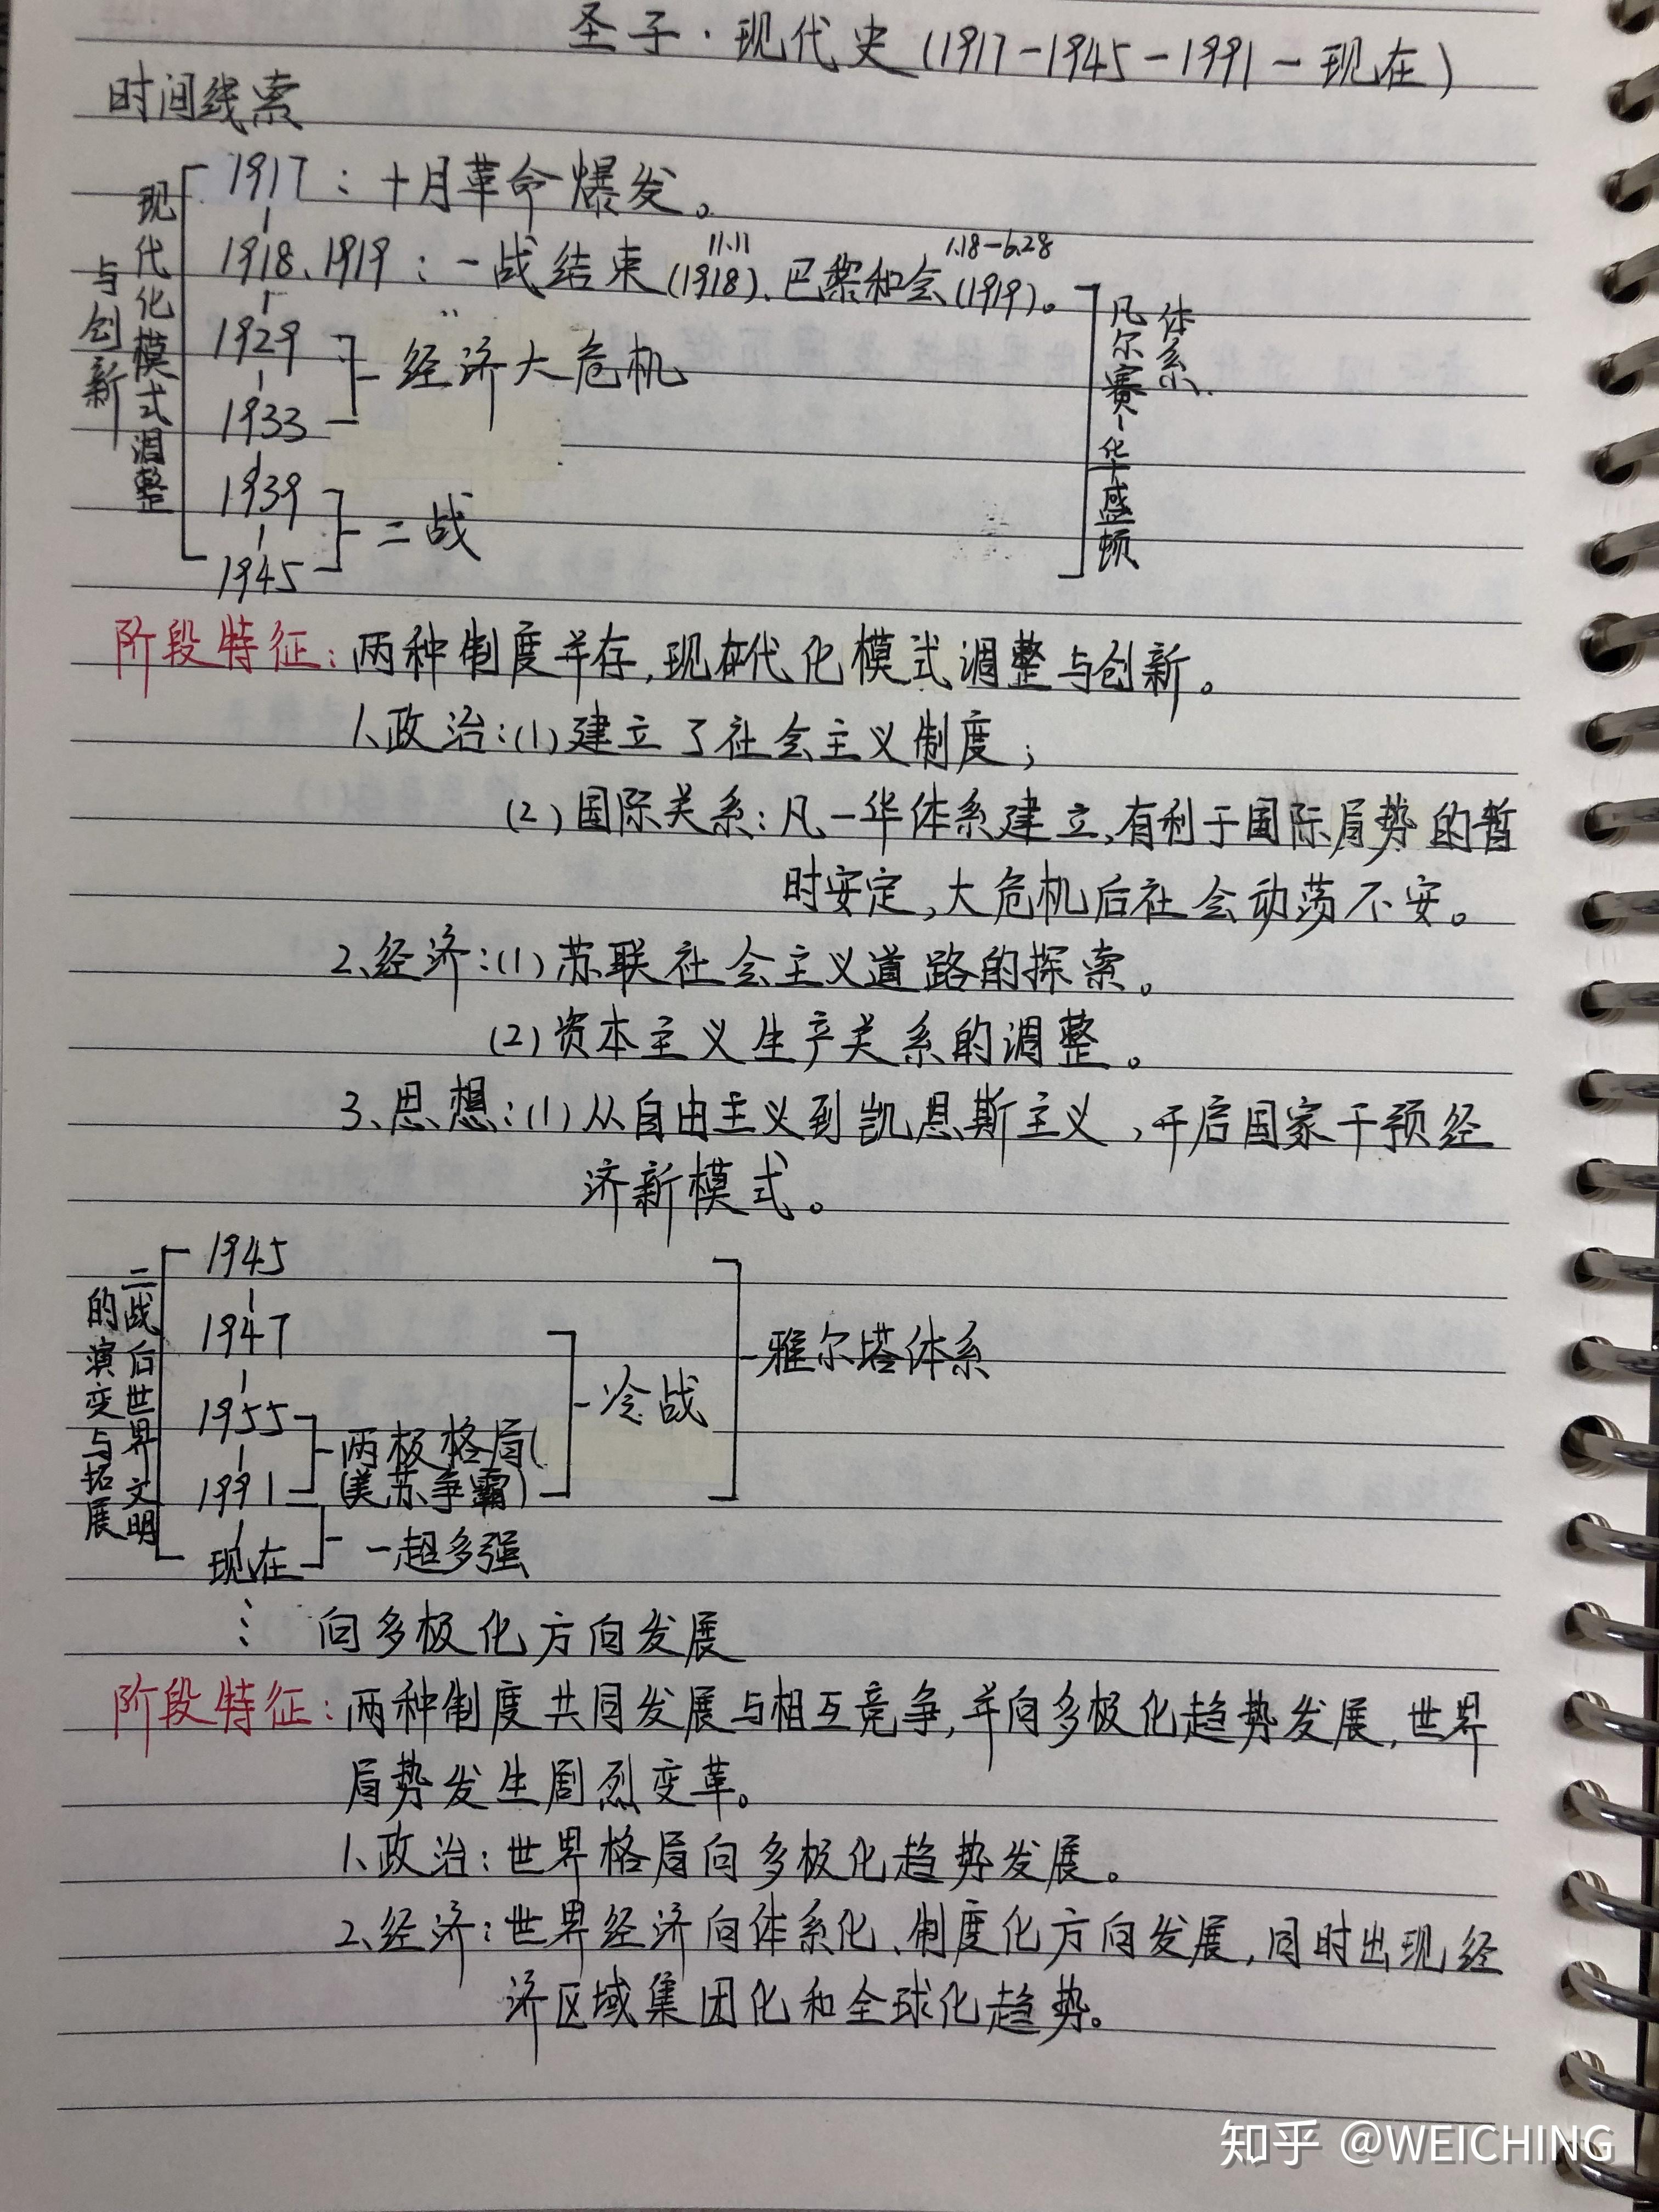 圣子·现代史(1917-1945-1991-现在)
时间线索
现代化模式调整
与创新
1917：十月革命爆发。
11.11 1.18-6.28
1918、1919：一战结束(1918)、巴黎和会(1919)。
1929
经济大危机
1933
1939
二战
1945
凡尔赛-华盛顿
体系
阶段特征：两种制度并存,现代化模式调整与创新。
1、政治：(1)建立了社会主义制度；
(2)国际关系：凡一华体系建立,有利于国际局势的暂
时安定,大危机后社会动荡不安。
2、经济：(1)苏联社会主义道路的探索。
(2)资本主义生产关系的调整。
3、思想：(1)从自由主义到凯恩斯主义,开启国家干预经
济新模式。
二战后世界文明
的演变与拓展
1945
1947
雅尔塔体系
冷战
1955
两极格局(
1991
(美苏争霸)
现在
一超多强
向多极化方向发展
阶段特征：两种制度共同发展与相互竞争,并向多极化趋势发展,世界
局势发生剧烈变革。
1、政治：世界格局向多极化趋势发展。
2、经济：世界经济向体系化、制度化方向发展,同时出现经
济区域集团化和全球化趋势。
知乎 @WEICHING